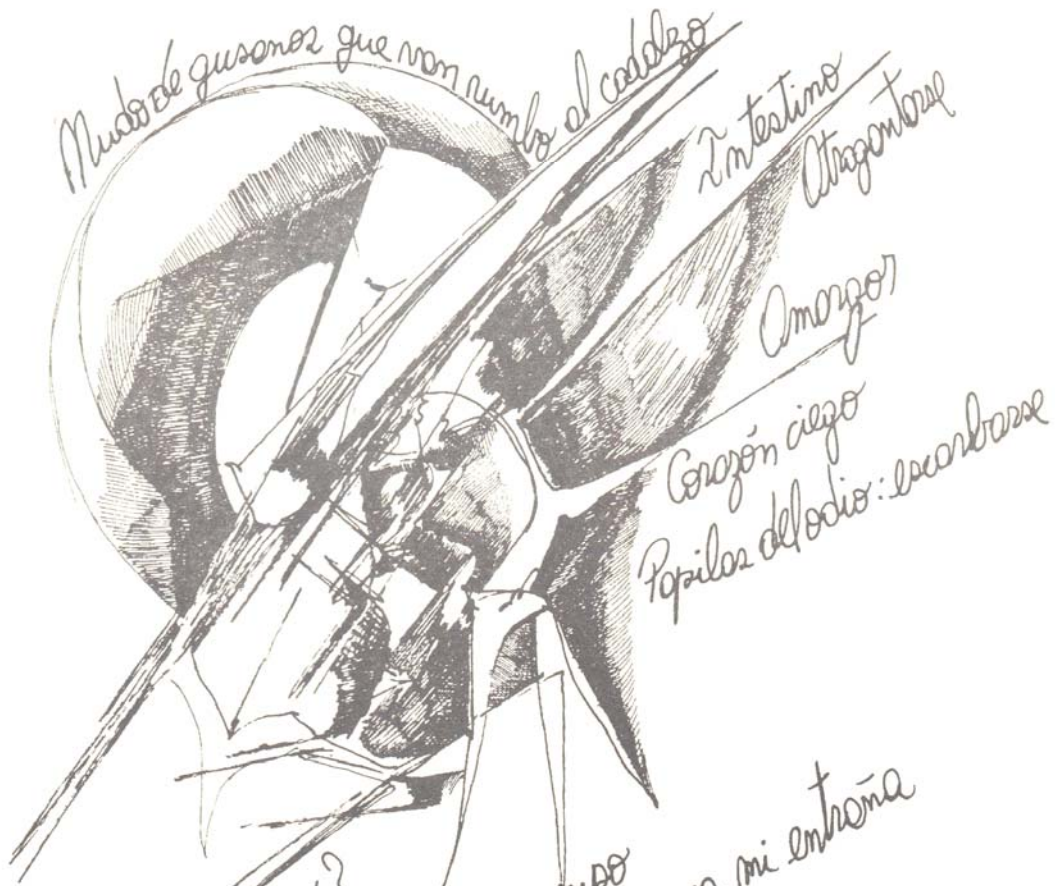 Nudo de gusanos que van rumbo al cadalzo
Intestino
Atragantarse
Amargor
Corazón ciego
Papilas del odio: escarbarse
mi entraña